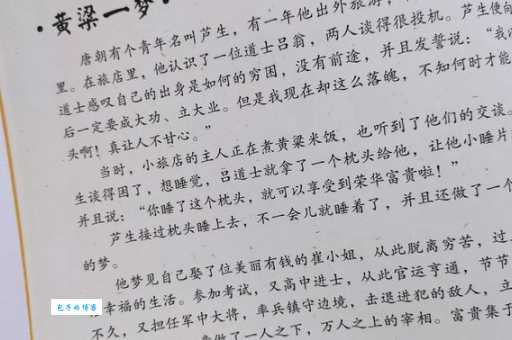 ·黄粱一梦·
唐朝有个青年名叫芦生，有一年他出外旅游，
里。在旅店里，他认识了一位道士吕翁，两人谈得很投机。芦生便向
道士感叹自己的出身是如何的穷困，没有前途，并且发誓说：“我
后一定要成大功、立大业。但是我现在却这么落魄，不知何时才能
头啊！真让人不甘心。”
当时，小旅店的主人正在煮黄粱米饭，也听到了他们的交谈。
生谈得困了，想睡觉，吕道士就拿了一个枕头给他，让他小睡片
并且说：“你睡了这个枕头，就可以享受到荣华富贵啦！”
芦生接过枕头睡上去，不一会儿就睡着了，并且还做了一个
的梦。
他梦见自己娶了位美丽有钱的崔小姐，从此脱离穷苦，过
幸福的生活。参加考试，又高中进士，从此官运亨通，节节
不久，又担任军中大将，率兵镇守边境，击退进犯的敌人，立
做了一人之下，万人之上的宰相。富贵集于